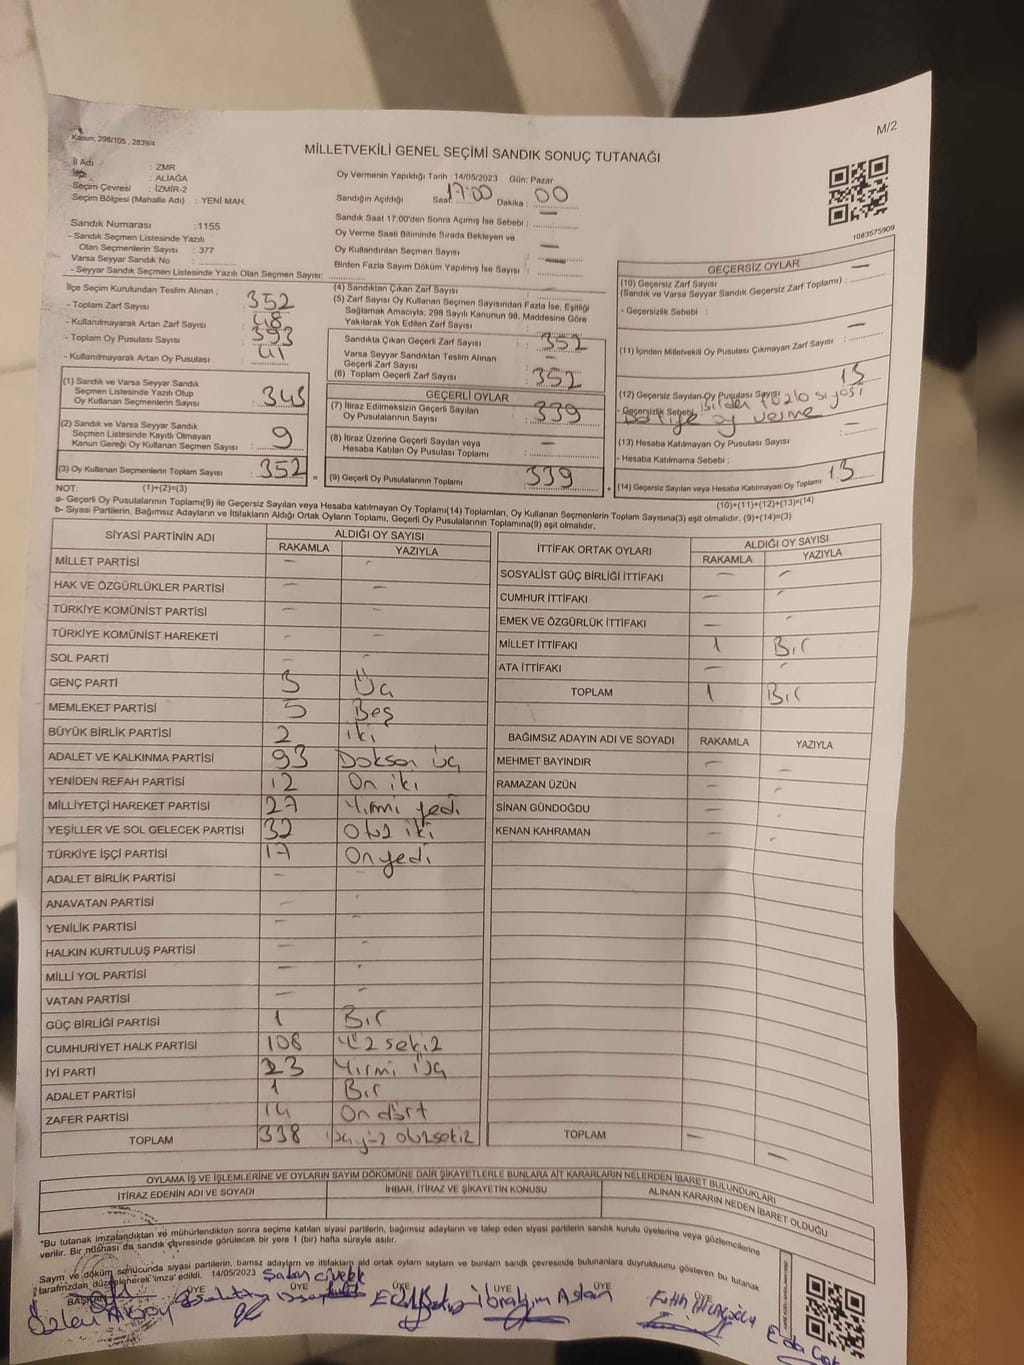 Kanun: 298/105 , 2839/4
M/2
MİLLETVEKİLİ GENEL SEÇİMİ SANDIK SONUÇ TUTANAĞI
İl Adı : ZMR
: ALİAĞA
Seçim Çevresi : İZMİR-2
Seçim Bölgesi (Mahalle Adı) : YENİ MAH.
Oy Vermenin Yapıldığı Tarih : 14/05/2023 Gün: Pazar
Sandığın Açıldığı Saat: 17:00 Dakika : 00
Sandık Saat 17:00'den Sonra Açılmış İse Sebebi : —
Oy Verme Saati Bitiminde Sırada Bekleyen ve
Oy Kullandırılan Seçmen Sayısı —
Birden Fazla Sayım Döküm Yapılmış İse Sayısı : —
1083575909
Sandık Numarası :1155
- Sandık Seçmen Listesinde Yazılı
Olan Seçmenlerin Sayısı : 377
Varsa Seyyar Sandık No :
- Seyyar Sandık Seçmen Listesinde Yazılı Olan Seçmen Sayısı:
İlçe Seçim Kurulundan Teslim Alınan ;
- Toplam Zarf Sayısı
- Kullanılmayarak Artan Zarf Sayısı : 48
- Toplam Oy Pusulası Sayısı : 393
- Kullanılmayarak Artan Oy Pusulası : 41
(1) Sandık ve Varsa Seyyar Sandık
Seçmen Listesinde Yazılı Olup
Oy Kullanan Seçmenlerin Sayısı : 343
(2) Sandık ve Varsa Seyyar Sandık
Seçmen Listesinde Kayıtlı Olmayan
Kanun Gereği Oy Kullanan Seçmen Sayısı : 9
(3) Oy Kullanan Seçmenlerin Toplam Sayısı : 352
(4) Sandıktan Çıkan Zarf Sayısı
(5) Zarf Sayısı Oy Kullanan Seçmen Sayısından Fazla İse, Eşitliği
Sağlamak Amacıyla; 298 Sayılı Kanunun 98. Maddesine Göre
Yakılarak Yok Edilen Zarf Sayısı :
Sandıkta Çıkan Geçerli Zarf Sayısı : 352
Varsa Seyyar Sandıktan Teslim Alınan
Geçerli Zarf Sayısı : —
(6) Toplam Geçerli Zarf Sayısı : 352
GEÇERLİ OYLAR
(7) İtiraz Edilmeksizin Geçerli Sayılan
Oy Pusulalarının Sayısı : 339
(8) İtiraz Üzerine Geçerli Sayılan veya
Hesaba Katılan Oy Pusulası Toplamı : —
(9) Geçerli Oy Pusulalarının Toplamı : 339
GEÇERSİZ OYLAR
(10) Geçersiz Zarf Sayısı —
(Sandık ve Varsa Seyyar Sandık Geçersiz Zarf Toplamı) :
- Geçersizlik Sebebi :
(11) İçinden Milletvekili Oy Pusulası Çıkmayan Zarf Sayısı : —
(12) Geçersiz Sayılan Oy Pusulası Sayısı : 13
- Geçersizlik Sebebi : Birden fazla siyasi
Partiye oy verme
(13) Hesaba Katılmayan Oy Pusulası Sayısı : —
- Hesaba Katılmama Sebebi :
(14) Geçersiz Sayılan veya Hesaba Katılmayan Oy Toplamı : 13
NOT: (1)+(2)=(3)
(10)+(11)+(12)+(13)=(14)
a- Geçerli Oy Pusulalarının Toplamı(9) ile Geçersiz Sayılan veya Hesaba katılmayan Oy Toplamı(14) Toplamları, Oy Kullanan Seçmenlerin Toplam Sayısına(3) eşit olmalıdır. (9)+(14)=(3)
b- Siyasi Partilerin, Bağımsız Adayların ve İttifakların Aldığı Ortak Oyların Toplamı, Geçerli Oy Pusulalarının Toplamına(9) eşit olmalıdır.
SİYASİ PARTİNİN ADI ALDIĞI OY SAYISI
RAKAMLA YAZIYLA
MİLLET PARTİSİ — —
HAK VE ÖZGÜRLÜKLER PARTİSİ — —
TÜRKİYE KOMÜNİST PARTİSİ — —
TÜRKİYE KOMÜNİST HAREKETİ — —
SOL PARTİ — —
GENÇ PARTİ 3 Üç
MEMLEKET PARTİSİ 5 Beş
BÜYÜK BİRLİK PARTİSİ 2 iki
ADALET VE KALKINMA PARTİSİ 93 Doksan üç
YENİDEN REFAH PARTİSİ 12 On iki
MİLLİYETÇİ HAREKET PARTİSİ 27 Yirmi yedi
YEŞİLLER VE SOL GELECEK PARTİSİ 32 Otuz iki
TÜRKİYE İŞÇİ PARTİSİ 17 On yedi
ADALET BİRLİK PARTİSİ — —
ANAVATAN PARTİSİ — —
YENİLİK PARTİSİ — —
HALKIN KURTULUŞ PARTİSİ — —
MİLLİ YOL PARTİSİ — —
VATAN PARTİSİ — —
GÜÇ BİRLİĞİ PARTİSİ 1 Bir
CUMHURİYET HALK PARTİSİ 108 Yüz sekiz
İYİ PARTİ 23 Yirmi üç
ADALET PARTİSİ 1 Bir
ZAFER PARTİSİ 14 On dört
TOPLAM 338 üçyüz otuzsekiz
İTTİFAK ORTAK OYLARI ALDIĞI OY SAYISI
RAKAMLA YAZIYLA
SOSYALİST GÜÇ BİRLİĞİ İTTİFAKI — —
CUMHUR İTTİFAKI — —
EMEK VE ÖZGÜRLÜK İTTİFAKI — —
MİLLET İTTİFAKI 1 Bir
ATA İTTİFAKI — —
TOPLAM 1 Bir
BAĞIMSIZ ADAYIN ADI VE SOYADI RAKAMLA YAZIYLA
MEHMET BAYINDIR — —
RAMAZAN ÜZÜN — —
SİNAN GÜNDOĞDU — —
KENAN KAHRAMAN — —
TOPLAM — —
OYLAMA İŞ VE İŞLEMLERİNE VE OYLARIN SAYIM DÖKÜMÜNE DAİR ŞİKAYETLERLE BUNLARA AİT KARARLARIN NELERDEN İBARET BULUNDUKLARI
İTİRAZ EDENİN ADI VE SOYADI İHBAR, İTİRAZ VE ŞİKAYETİN KONUSU ALINAN KARARIN NEDEN İBARET OLDUĞU
"Bu tutanak imzalandıktan ve mühürlendikten sonra seçime katılan siyasi partilerin, bağımsız adayların ve talep eden siyasi partilerin sandık kurulu üyelerine veya gözlemcilerine
verilir. Bir nüshası da sandık çevresinde görülecek bir yere 1 (bir) hafta süreyle asılır.
Sayım ve döküm sonucunda siyasi partilerin,
tarafımızdan düzenlenerek imza edildi. 14/05/2023
BAŞKAN ÜYE ÜYE ÜYE ÜYE
Özlem Aksoy İbrahim Aslan Fatih
Eda